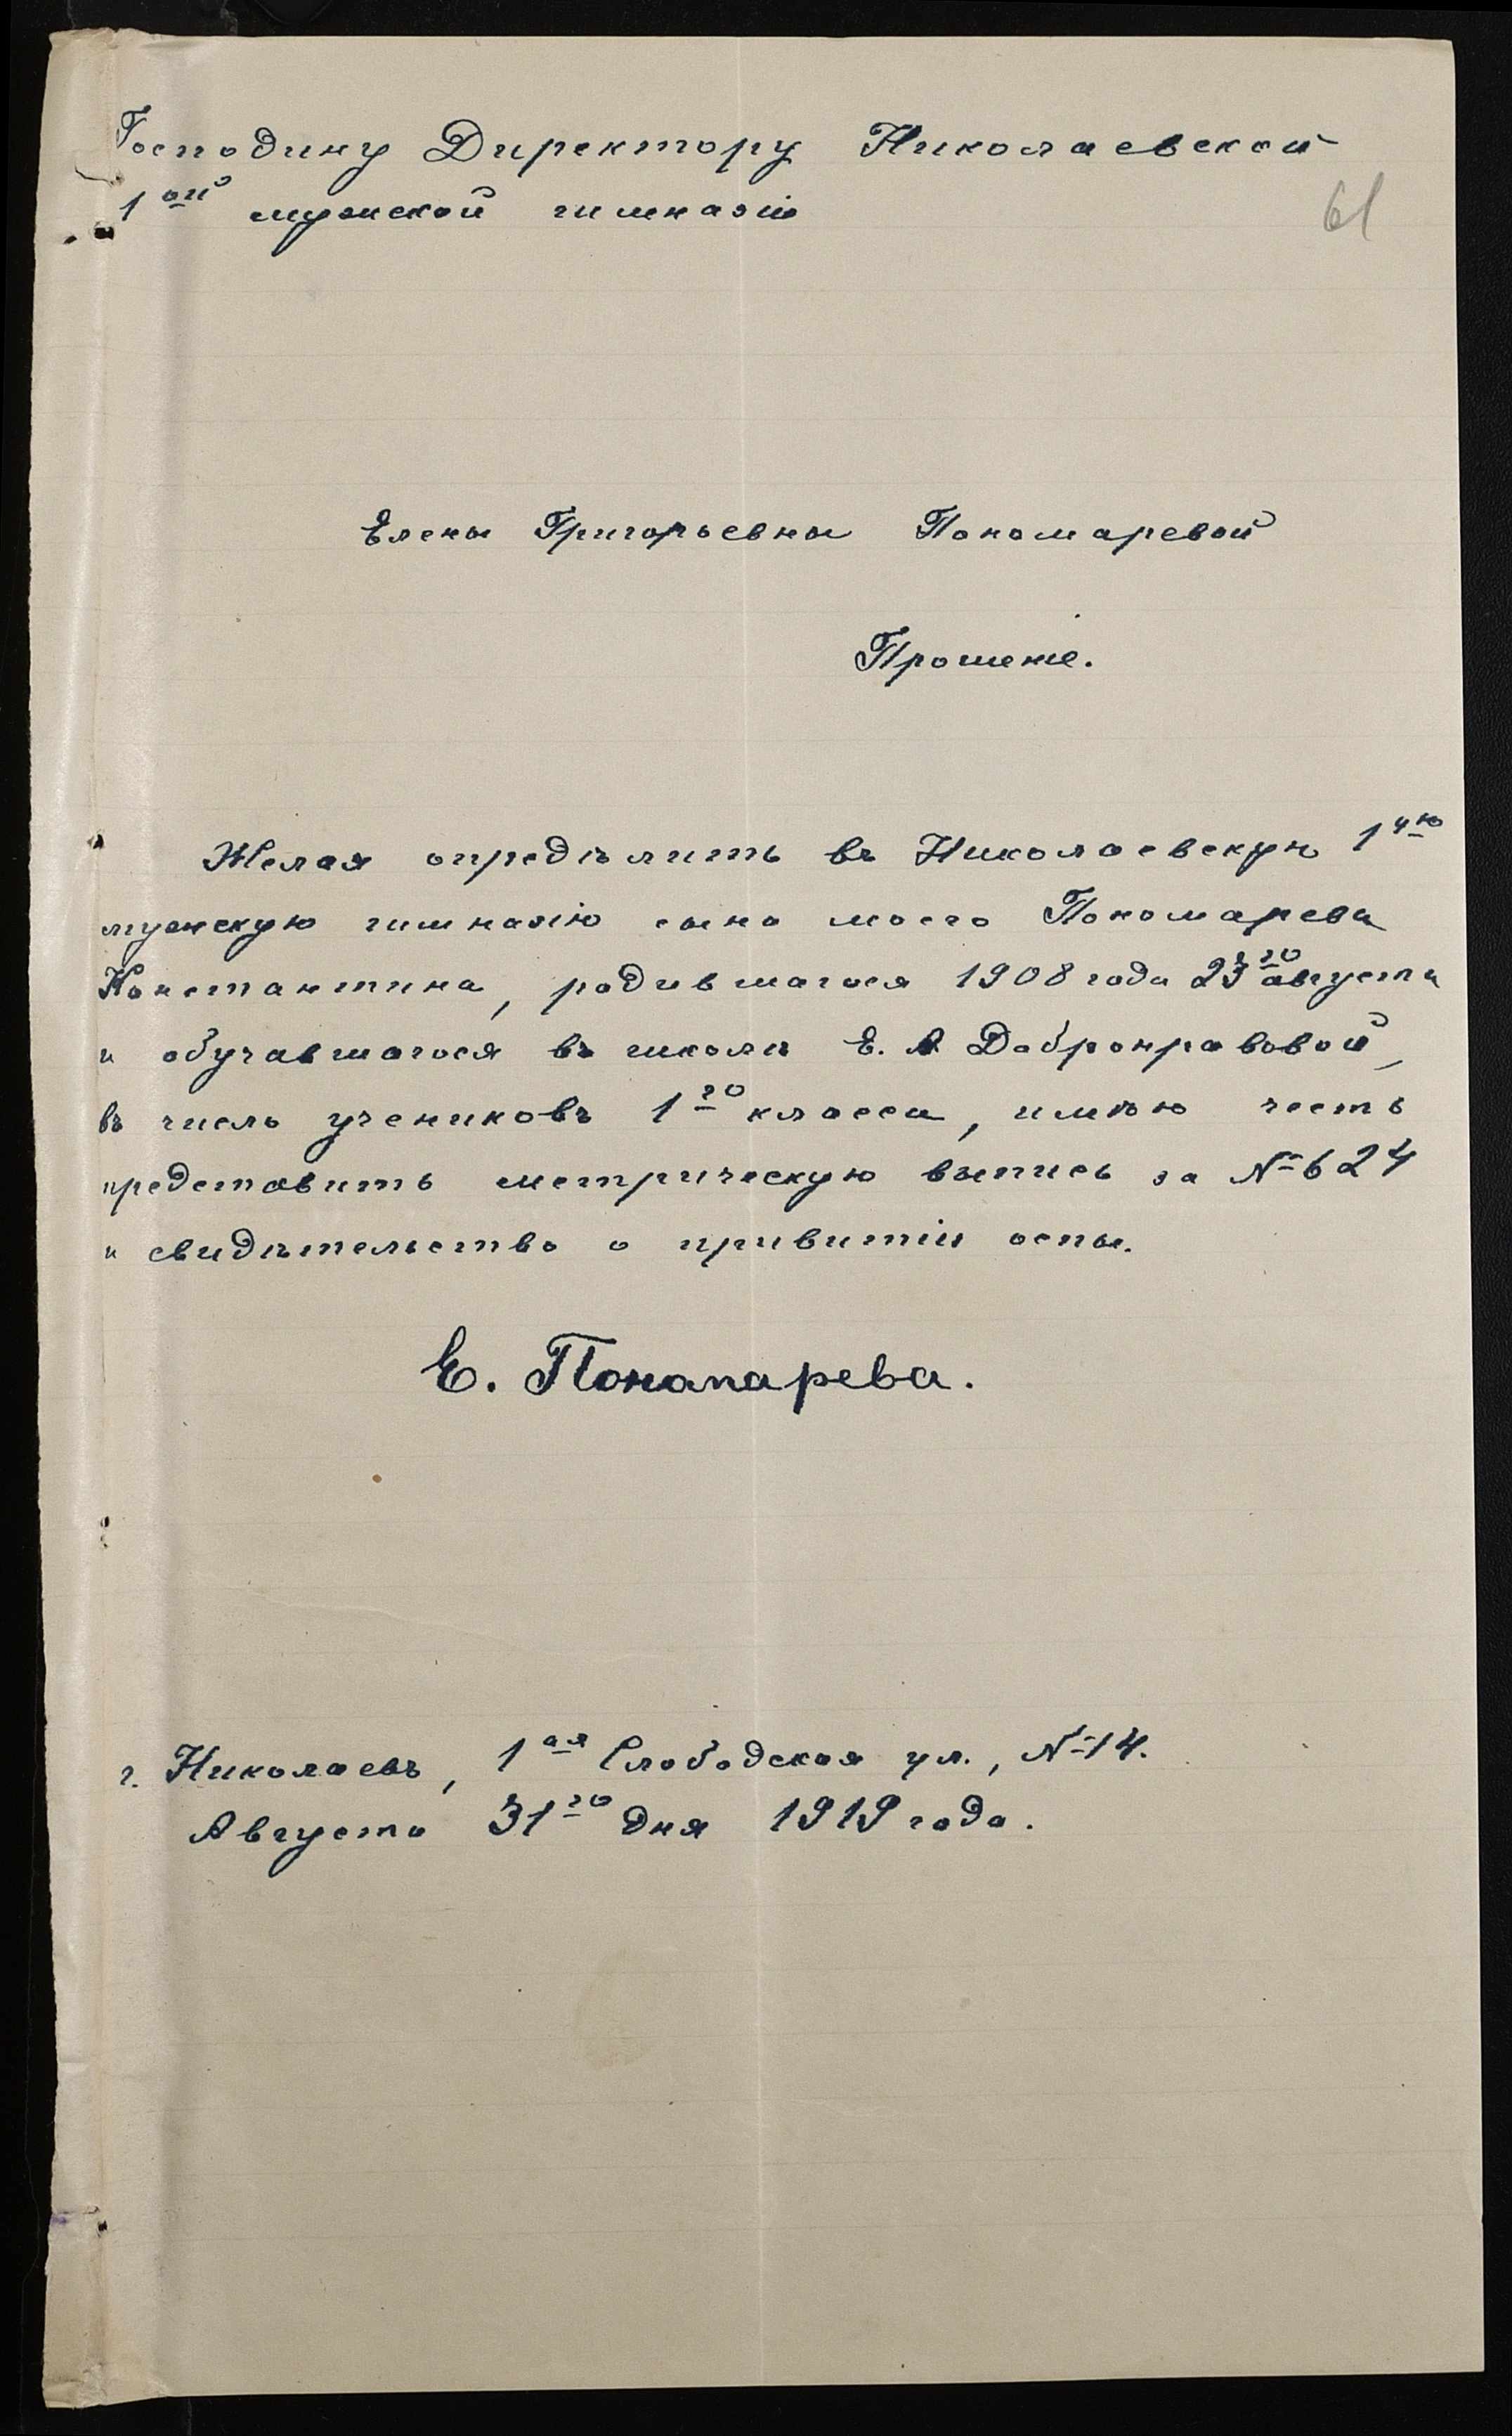 Господину Директору Николаевской
1ой мужской гимназіи
61
Елены Григорьевны Пономаревой
Прошеніе.
Желая опредѣлить въ Николаевскую 1ую
мужскую гимназію сына моего Пономарева
Константина, родившагося 1908 года 23го августа
и обучавшагося въ школѣ Е. А Добронравовой,
въ числѣ учениковъ 1го класса, имѣю честь
представить метрическую выпись за № 624
и свидѣтельство о привитіи оспы.
Е. Понамарева.
г. Николаевъ, 1ая Слободская ул., № 14.
Августа 31го дня 1919 года.